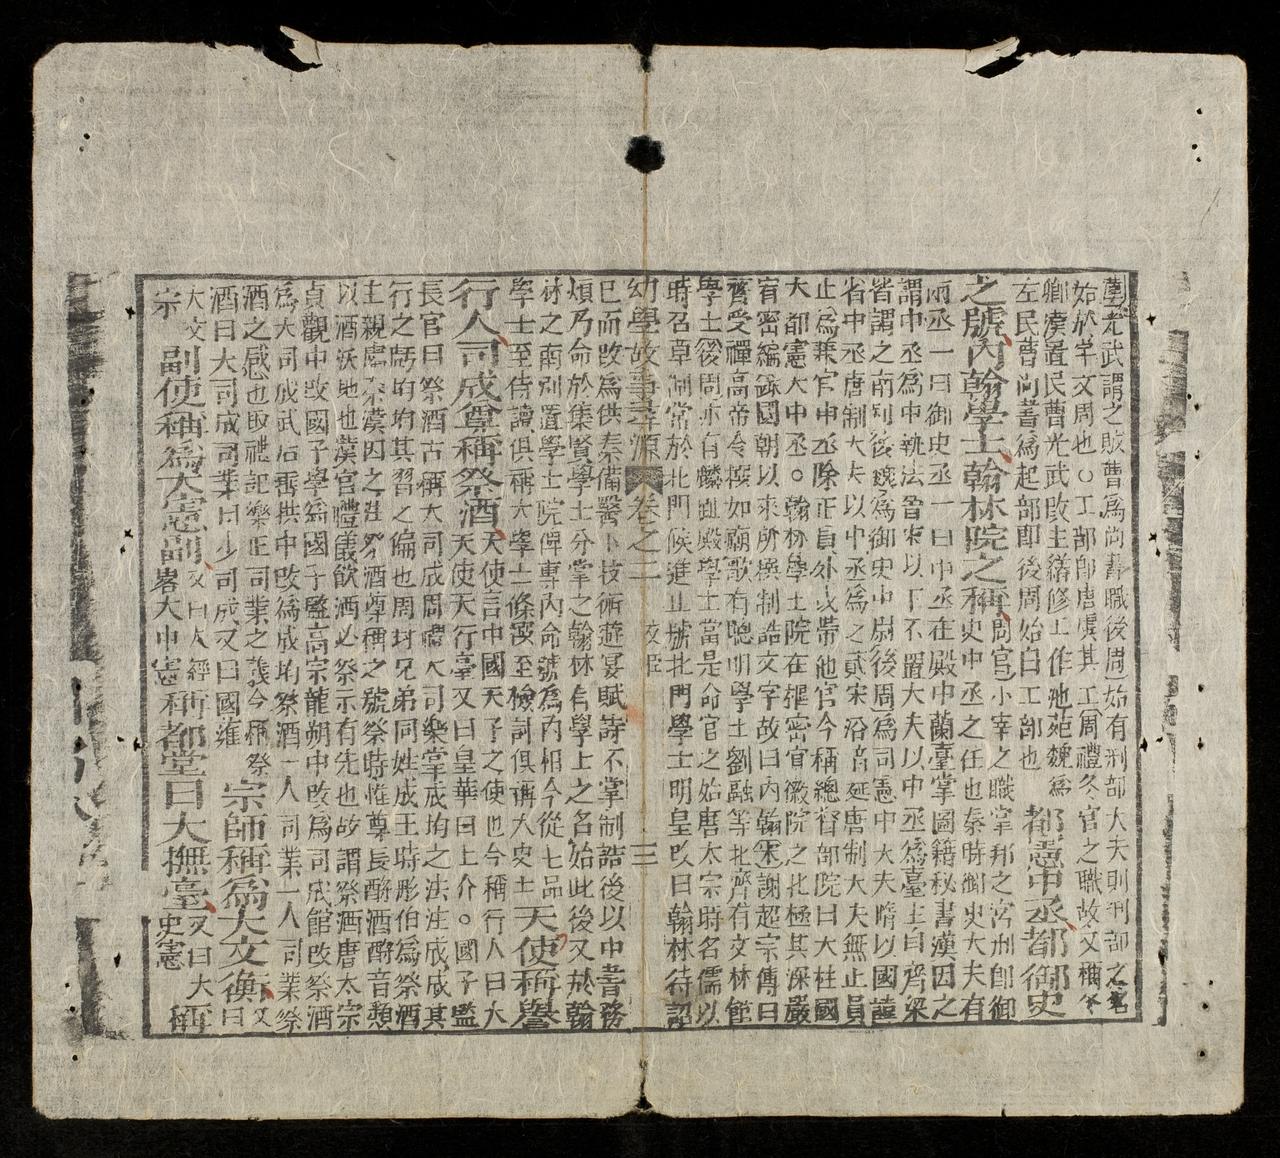 光武謂之賊曹為尚書職後周始有刑部大夫則刑部之名
始於宇文周也○工部即唐虞其工周禮冬官之職故又稱冬
卿漢置民曹光武改主繕修工作池苑魏為
左民曹尚書為起部即後周始白工部也 都憲中丞都御史
之號內翰學士翰林院之稱周官小宰之職掌邦之宮刑即御
史中丞之任也秦時御史大夫有
兩丞一曰御史丞一曰中丞在殿中蘭臺掌圖籍秘書漢因之
謂中丞為中執法晉宋以下不置大夫以中丞為臺主自齊梁
皆謂之南司後魏為御史中尉後周為司憲中大夫隋以國諱
省中丞唐制大夫以中丞為之貳宋沿音延唐制大夫無止員
止為兼官中丞除正員外或帶他官今稱總督部院曰大柱國
大都憲大中丞○翰林學士院在樞密宣徽院之北極其深嚴
宥密編錄國朝以來所撰制誥文字故曰內翰宋謝超宗傳曰
齊受禪高帝令撰如廟歌有聰明學士劉融等北齊有文林館
學士後周亦有麟趾殿學士當是命官之始唐太宗時名儒以
時召草制常於北門候進止號北門學士明皇改曰翰林待詔
幼學故事尋源 卷之二 三
已而改為供奉備醫卜技術遊宴賦詩不掌制誥後以中書務
煩乃命於集賢學士分掌之翰林有學士之名始此後又於翰
林之南別置學士院俾專內命號為內相今從七品
學士至侍讀俱稱大學士條案至檢詞俱稱大史士 天使稱譽
行人司成尊稱祭酒天使言中國天子之使也今稱行人曰大
天使天行臺又曰皇華曰上介○國子監
長官曰祭酒古稱大司成周禮大司樂掌成均之法注成成其
行之虧均均其習之偏也周封兄弟同姓成王時彤伯為祭酒
主親處宗漢因之劉濞祭酒尊稱之號祭時惟尊長酹酒酹音類
以酒沃地也漢官禮儀飲酒必祭示有先也故謂祭酒唐太宗
貞觀中改國子學為國子監高宗龍朔中改為司成館改祭酒
為大司成武后垂拱中改為成均祭酒一人司業一人司業祭
酒之感也取禮記樂正司業之義今稱祭
酒曰大司成司業曰少司成又曰國雍 宗師稱為大文衡又曰
大文
宗 副使稱為大憲副又曰人經
畧大中憲 稱都堂曰大撫臺又曰大
史憲 稱